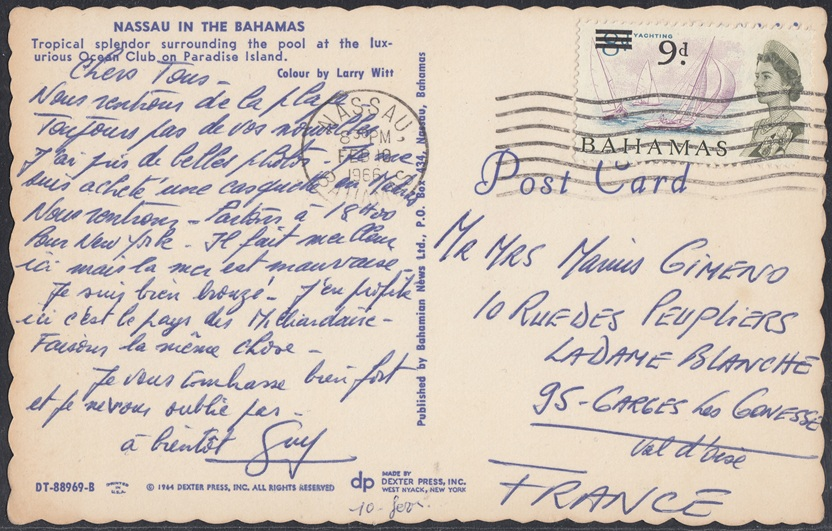 NASSAU IN THE BAHAMAS
Tropical splendor surrounding the pool at the lux-
urious Ocean Club on Paradise Island.
Colour by Larry Witt
Chers Tous -
Nous rentrons de la plage
Toujours pas de vos nouvelles
J'ai pris de belles photos - Je me
suis acheté une casquette en
Nous rentrons - Partons à 18H00
Pour New York - Il fait meilleur
ici mais la mer est mauvaise -
Je suis bien bronzé - J'en profite
ici c'est le pays des Milliardaires -
Faisons la même chose -
Je vous embrasse bien fort
et je ne vous oublie pas -
à bientôt Guy
DT-88969-B
PRINTED IN U.S.A.
© 1964 DEXTER PRESS, INC. ALL RIGHTS RESERVED
dp
MADE BY
DEXTER PRESS, INC.
WEST NYACK, NEW YORK
Published by Bahamian News Ltd., P.O. Box 434, Nassau, Bahamas
NASSAU,
8 PM
FEB 10
1966
YACHTING
8d
9d
BAHAMAS
Post Card
MR MRS Marius GIMENO
10 RUE DES PEUPLIERS
LA DAME BLANCHE
95 - GARGES Les GONESSE
Val d'oise
FRANCE